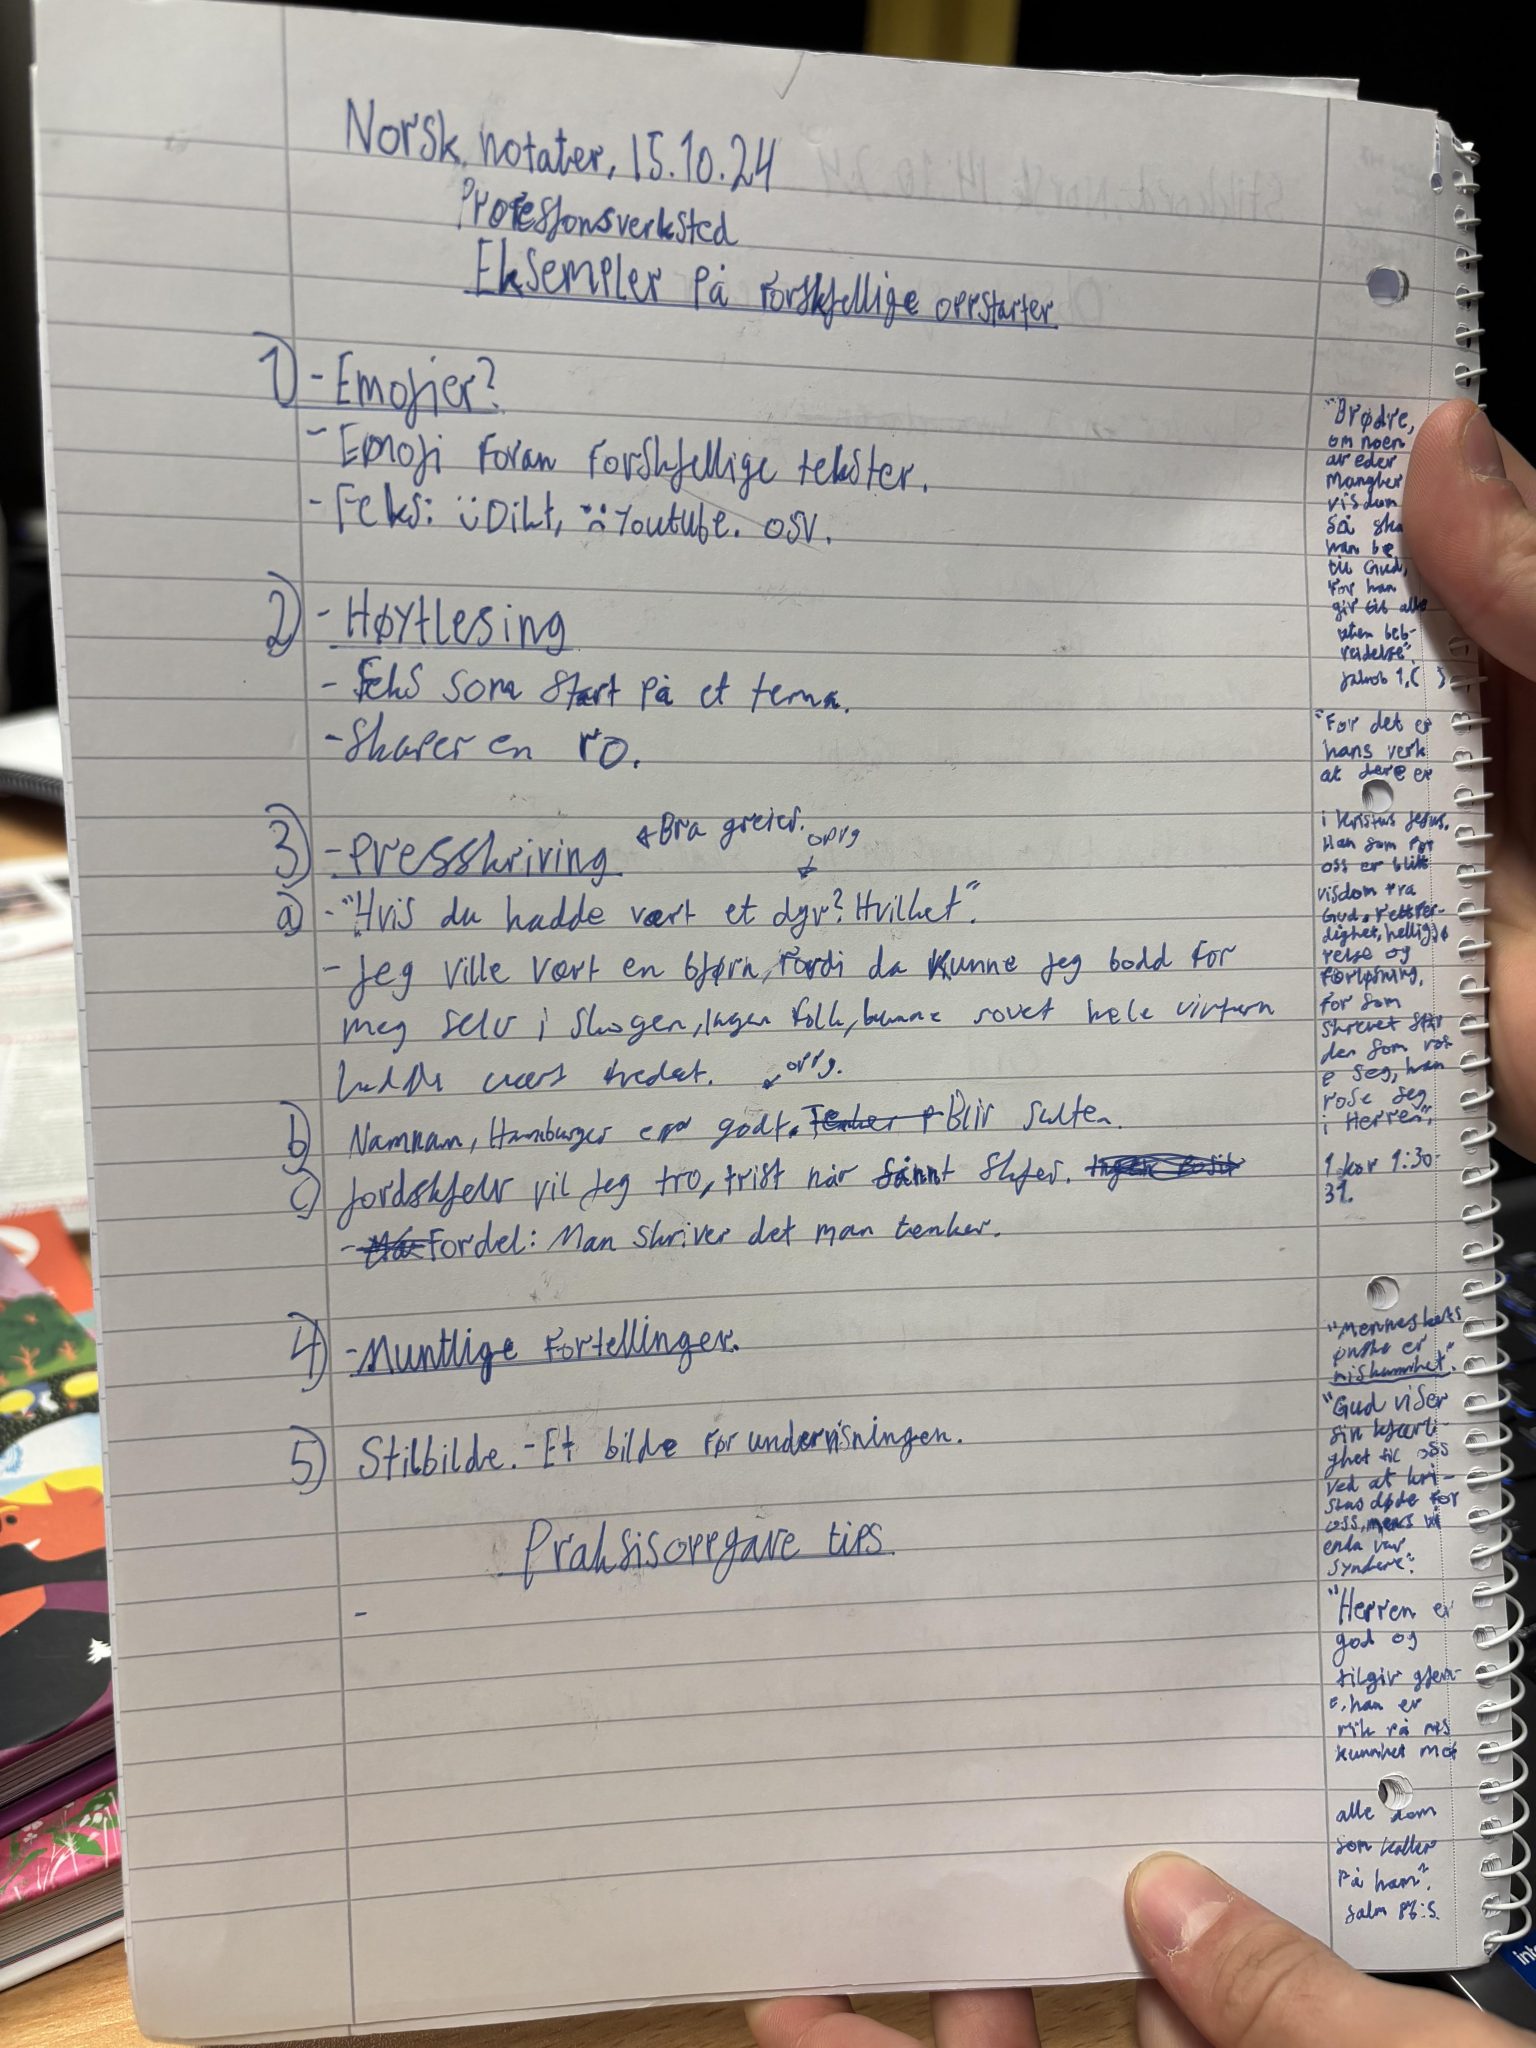 Norsk notater, 15.10.24
Profesjonsverksted
Eksempler på forskjellige oppstarter
1) - Emojier?
- Emoji foran forskjellige tekster.
- Feks: :) Dikt, :( Youtube. osv.
2) - Høytlesing
- Feks som start på et tema.
- Skaper en ro.
3) - Presskriving ← Bra greier.
oppg
a) - "Hvis du hadde vært et dyr? Hvilket".
- Jeg ville vært en bjørn, fordi da kunne jeg bodd for
meg selv i skogen, ingen folk, kunne sovet hele vintern
hadde vært fredat.
oppg.
b) Namnam, Hamburger er godt. Tenker Blir sulten.
c) Jordskjelv vil jeg tro, trist når sånnt skjer.
- Fordel: Man skriver det man tenker.
4) - Muntlige fortellinger.
5) Stilbilde. - Et bilde før undervisningen.
Praksisoppgave tips
-
"Brødre,
om noen
av eder
mangler
visdom
så ska
han be
til Gud,
for han
gir til alle
uten beb-
reidelse".
Jakob 1,( )
"For det er
hans verk
at dere er
i Kristus Jesus.
Han som for
oss er blitt
visdom fra
Gud, rettfer-
dighet, hellig
relse og
forløsning,
for som
skrevet står
den som ros
e seg, han
rose seg
i Herren",
1 kor 1:30-
31.
"Menneskets
ønske er
miskunnhet".
"Gud viser
sin kjærli-
ghet til oss
ved at kri-
stus døde for
oss, mens vi
enda var
syndere".
"Herren er
god og
tilgir gjern-
e, han er
rik på mis
kunnhet mot
alle dem
som kaller
på ham".
Salm 86:5.